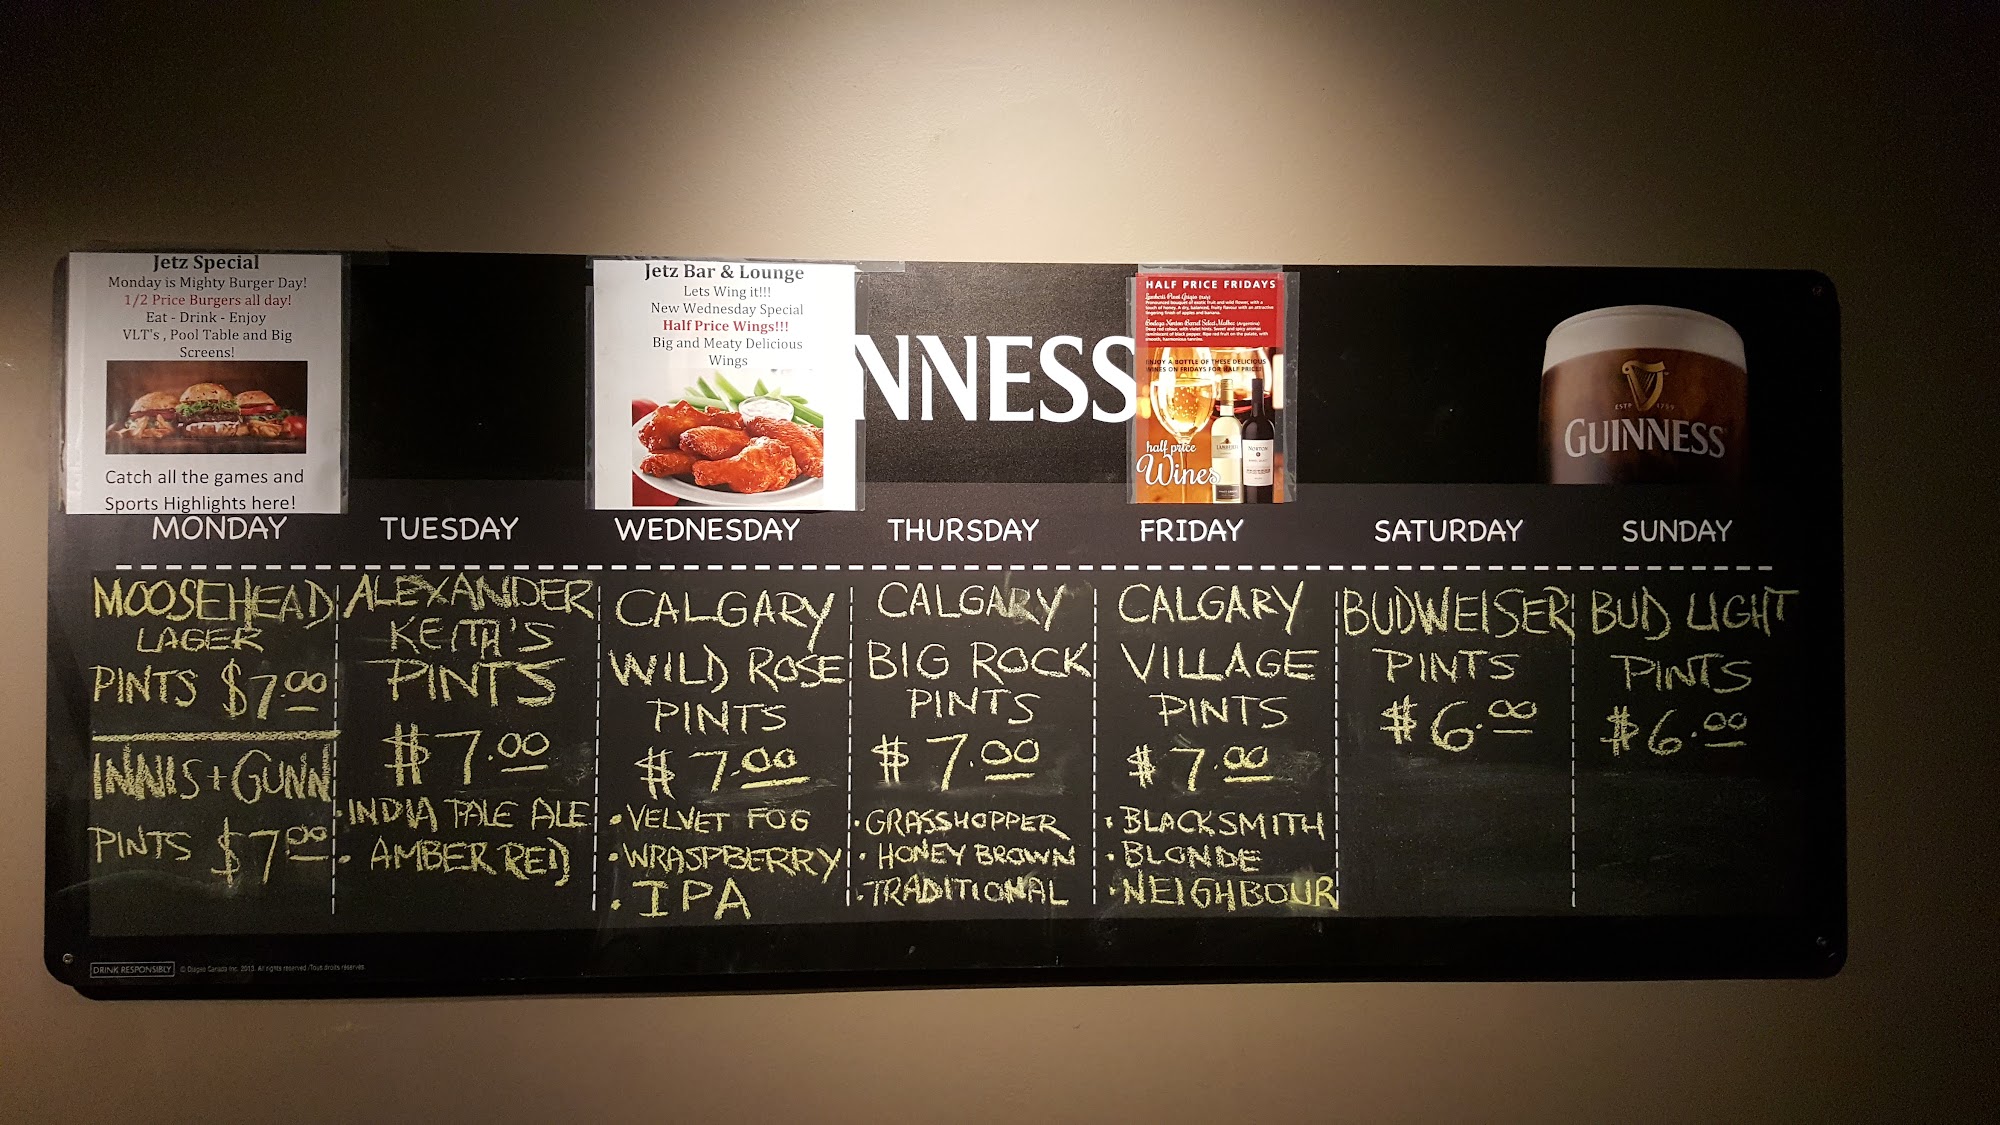 Jetz Special
Monday is Mighty Burger Day!
1/2 Price Burgers all day!
Eat - Drink - Enjoy
VLT's , Pool Table and Big
Screens!
Catch all the games and
Sports Highlights here!
Jetz Bar & Lounge
Lets Wing it!!!
New Wednesday Special
Half Price Wings!!!
Big and Meaty Delicious
Wings
NNESS
HALF PRICE FRIDAYS
ENJOY A BOTTLE OF THESE DELICIOUS
WINES ON FRIDAYS FOR HALF PRICE!
half price
Wines
NORTON
ESTD 1759
GUINNESS
MONDAY
MOOSEHEAD
LAGER
PINTS $7.00
INNIS + GUNN
PINTS $7.00
TUESDAY
ALEXANDER
KEITH'S
PINTS
$7.00
• INDIA PALE ALE
• AMBER RED
WEDNESDAY
CALGARY
WILD ROSE
PINTS
$7.00
• VELVET FOG
• WRASPBERRY
• IPA
THURSDAY
CALGARY
BIG ROCK
PINTS
$7.00
• GRASSHOPPER
• HONEY BROWN
• TRADITIONAL
FRIDAY
CALGARY
VILLAGE
PINTS
$7.00
• BLACKSMITH
• BLONDE
• NEIGHBOUR
SATURDAY
BUDWEISER
PINTS
$6.00
SUNDAY
BUD LIGHT
PINTS
$6.00
DRINK RESPONSIBLY
© Diageo Canada Inc. 2013. All rights reserved /Tous droits réservés